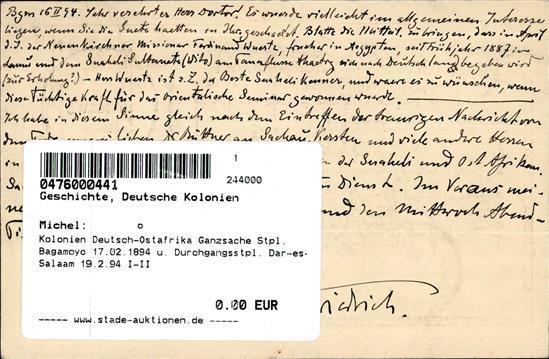 Bgm 16 II 94. Sehr verehrter Herr Doctor! Es wuerde vielleicht im allgemeinen Interesse
liegen, wenn Sie die Guete haetten in Ihr geschaetzt. Blatte die Mitteil. zu bringen, dass im April
d. J. der Neuenkirchener Missionar Ferdinand Wuertz, frueher in Aegypten, seit Fruehjahr 1887 in
Lamu und dem Suaheli Sultanate (Vito) am Tanaflusse thaetig sich nach Deutschland begeben wird
(zur Erholung?) — Herr Wuertz ist z. Z. der beste Suaheli Kenner, und waere es zu wünschen, wenn
diese tüchtige Kraft für das orientalische Seminar gewonnen wuerde.
Ich habe in diesem Sinne gleich nach dem Eintreffen der traurigen Nachricht von
dem Tode lieben Dr Büttner an Sachau, Kersten und viele andere Herren
in der Suaheli und Ost Afrikan.
Dienst. Im Voraus mei-
und den Mittwoch Abend-
Friedrich.
1
244000
0476000441
Geschichte, Deutsche Kolonien
Michel: o
Kolonien Deutsch-Ostafrika Ganzsache Stpl.
Bagamoyo 17.02.1894 u. Durchgangsstpl. Dar-es-
Salaam 19.2.94 I-II
0.00 EUR
----- www.stade-auktionen.de -----